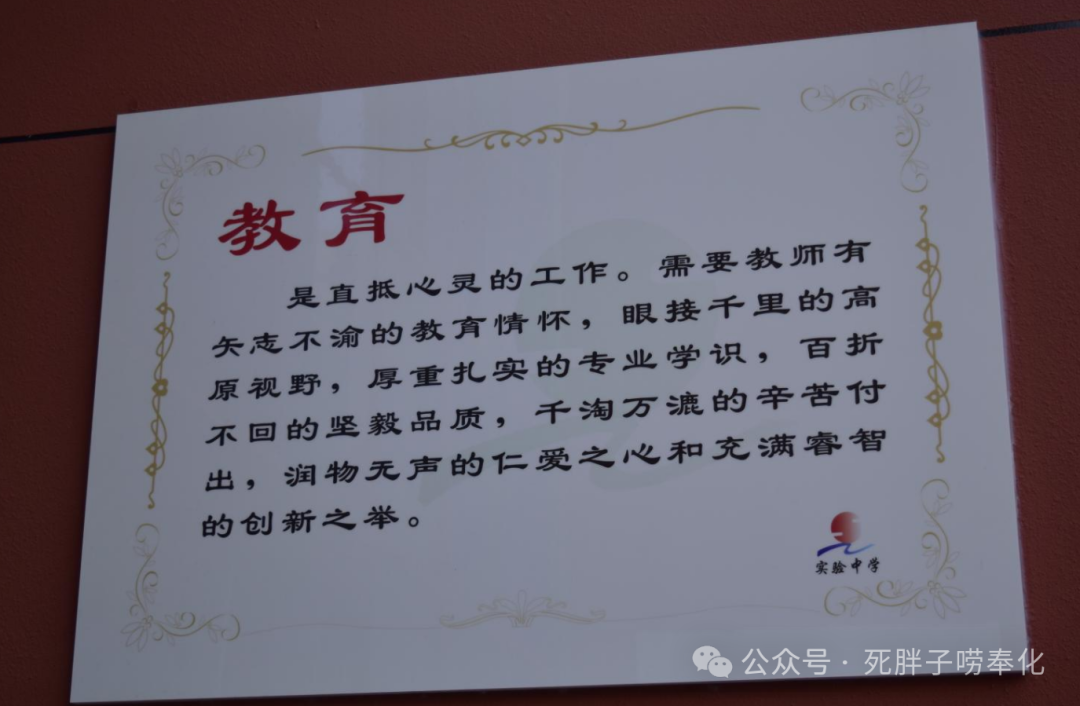 教育
是直抵心灵的工作。需要教师有
矢志不渝的教育情怀，眼接千里的高
原视野，厚重扎实的专业学识，百折
不回的坚毅品质，千淘万漉的辛苦付
出，润物无声的仁爱之心和充满睿智
的创新之举。
实验中学
公众号·死胖子唠奉化